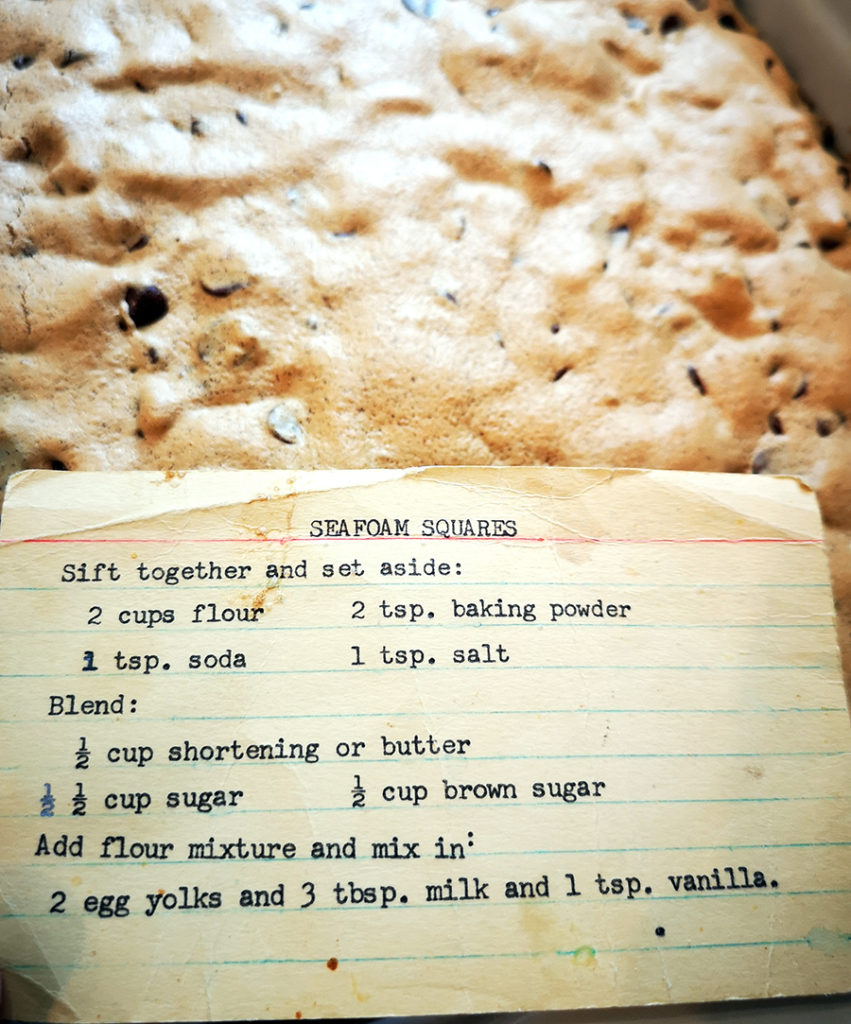 SEAFOAM SQUARES
Sift together and set aside:
2 cups flour 2 tsp. baking powder
1 tsp. soda 1 tsp. salt
Blend:
½ cup shortening or butter
½ ½ cup sugar ½ cup brown sugar
Add flour mixture and mix in:
2 egg yolks and 3 tbsp. milk and 1 tsp. vanilla.